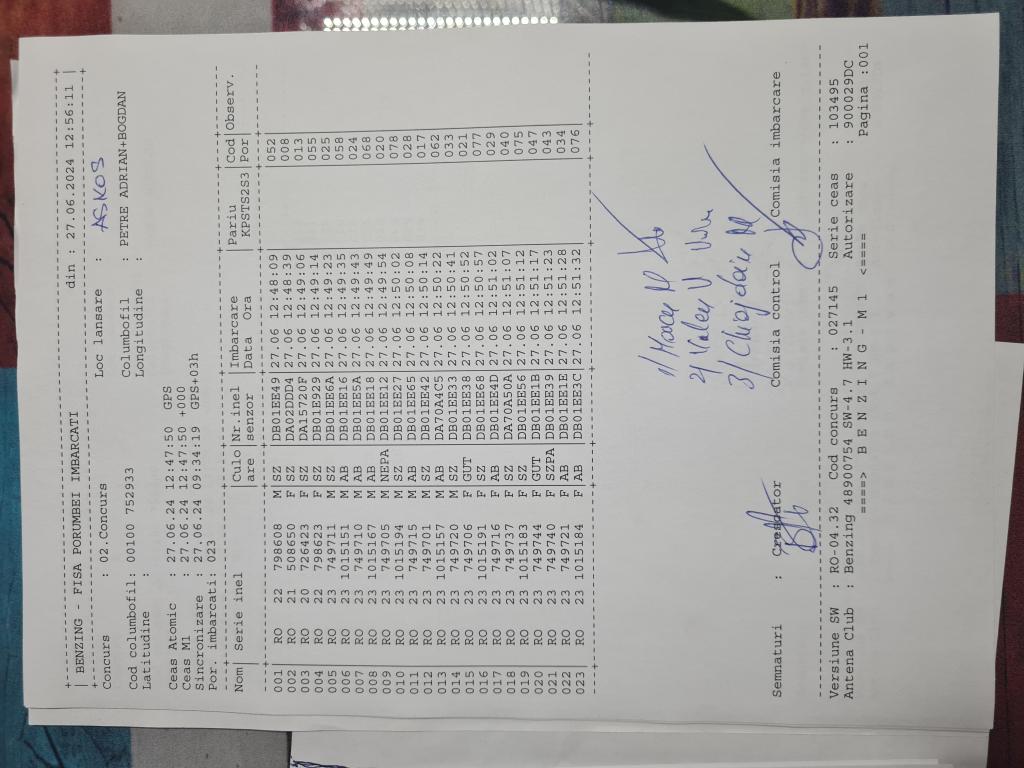 BENZING - FISA PORUMBEI IMBARCATI din : 27.06.2024 12:56:11
Concurs : 02.Concurs Loc lansare : ASKOS
Cod columbofil: 00100 752933 Columbofil : PETRE ADRIAN+BOGDAN
Latitudine : Longitudine :
Ceas Atomic : 27.06.24 12:47:50 GPS
Ceas M1 : 27.06.24 12:47:50 +000
Sincronizare : 27.06.24 09:34:19 GPS+03h
Por. imbarcati: 023
Nom Serie inel Culo Nr.inel Imbarcare Pariu Cod Observ.
are senzor Data Ora KPSTS2S3 Por
001 RO 22 798608 M SZ DB01EE49 27.06 12:48:09 052
002 RO 21 508650 F SZ DA02DDD4 27.06 12:48:39 008
003 RO 20 726423 F SZ DA15720F 27.06 12:49:06 013
004 RO 22 798623 F SZ DB01E929 27.06 12:49:14 055
005 RO 23 749711 M SZ DB01EE6A 27.06 12:49:23 025
006 RO 23 1015151 M AB DB01EE16 27.06 12:49:35 058
007 RO 23 749710 M AB DB01EE5A 27.06 12:49:43 024
008 RO 23 1015167 M AB DB01EE18 27.06 12:49:49 068
009 RO 23 749705 M NEPA DB01EE12 27.06 12:49:54 020
010 RO 23 1015194 M SZ DB01EE27 27.06 12:50:02 078
011 RO 23 749715 M AB DB01EE65 27.06 12:50:08 028
012 RO 23 749701 M SZ DB01EE42 27.06 12:50:14 017
013 RO 23 1015157 M AB DA70A4C5 27.06 12:50:22 062
014 RO 23 749720 M SZ DB01EE33 27.06 12:50:41 033
015 RO 23 749706 F GUT DB01EE38 27.06 12:50:52 021
016 RO 23 1015191 F SZ DB01EE68 27.06 12:50:57 077
017 RO 23 749716 F AB DB01EE4D 27.06 12:51:02 029
018 RO 23 749737 F SZ DA70A50A 27.06 12:51:07 040
019 RO 23 1015183 F SZ DB01EE56 27.06 12:51:12 075
020 RO 23 749744 F GUT DB01EE1B 27.06 12:51:17 047
021 RO 23 749740 F SZPA DB01EE39 27.06 12:51:23 043
022 RO 23 749721 F AB DB01EE1E 27.06 12:51:28 034
023 RO 23 1015184 F AB DB01EE3C 27.06 12:51:32 076
1/
2/ Valeu V
3/
Semnaturi : Crescator Comisia control Comisia imbarcare
Versiune SW : RO-04.32 Cod concurs : 027145 Serie ceas : 103495
Antena Club : Benzing 48900754 SW-4.7 HW-3.1 Autorizare : 900029DC
====> B E N Z I N G - M 1 <==== Pagina :001